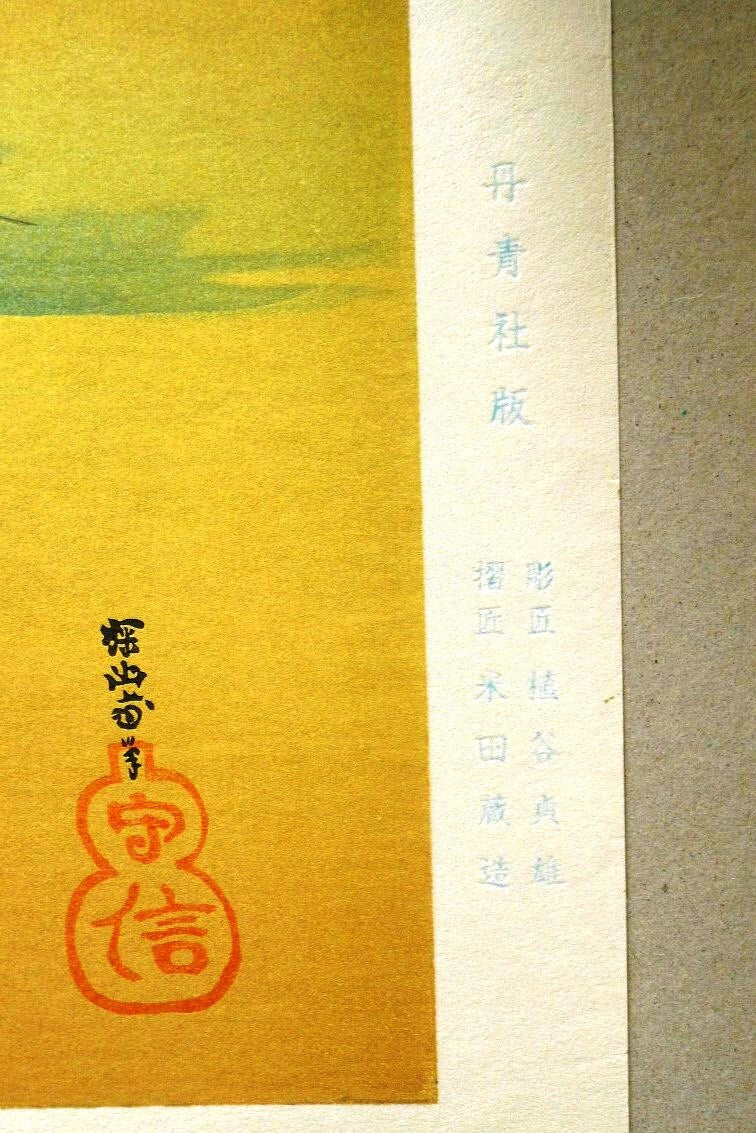 丹青社版
彫匠 植谷貞雄
摺匠 米田蔵造
探幽
守信